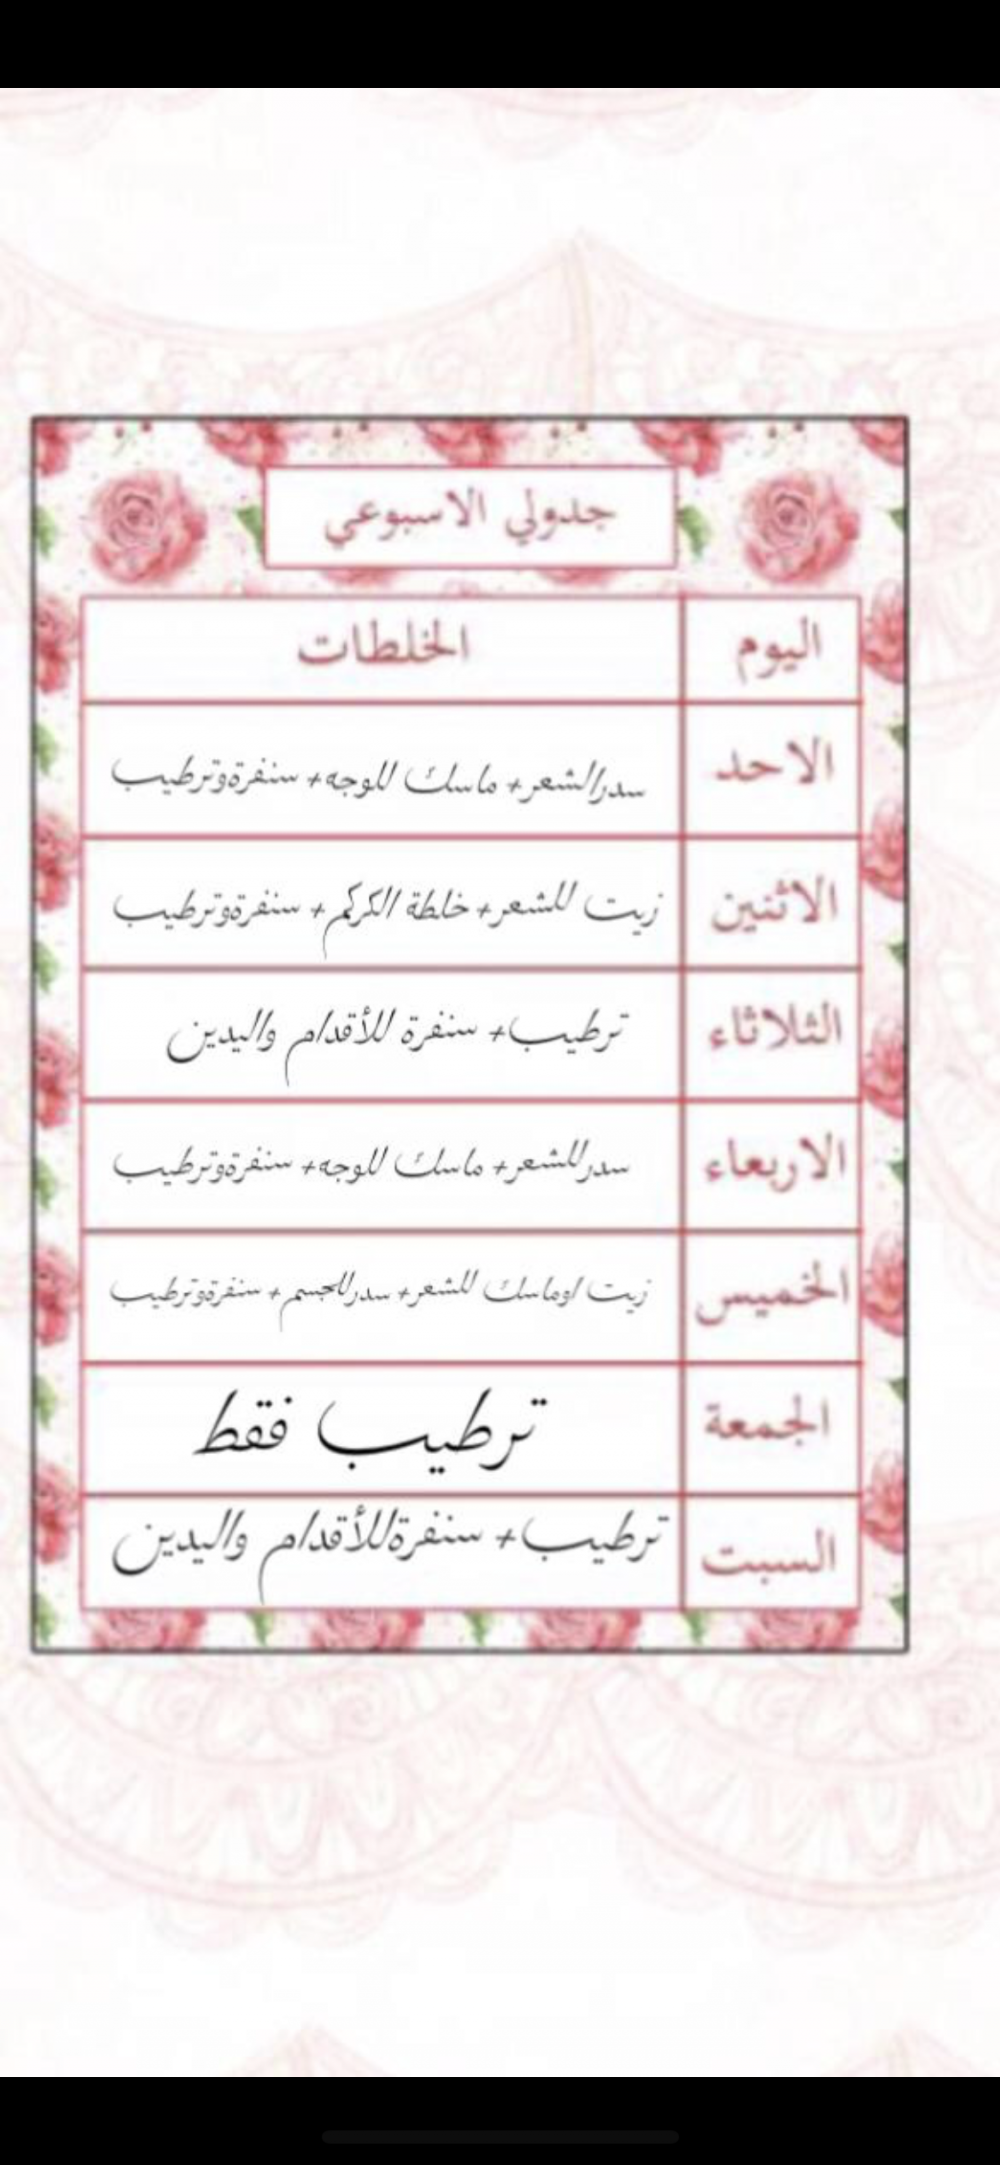 جدولي الاسبوعي
اليوم الخلطات
الاحد سدرالشعر+ ماسك للوجه+ سنفرةوترطيب
الاثنين زيت للشعر+ خلطة الكركم+ سنفرةوترطيب
الثلاثاء ترطيب+ سنفرة للأقدام واليدين
الاربعاء سدرللشعر+ ماسك للوجه+ سنفرةوترطيب
الخميس زيت اوماسك للشعر+ سدرللجسم+ سنفرةوترطيب
الجمعة ترطيب فقط
السبت ترطيب+ سنفرةللأقدام واليدين